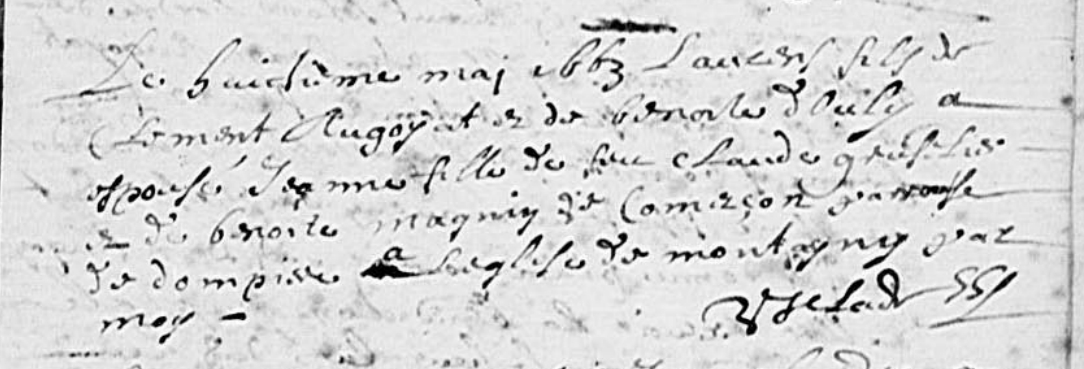 Le huictieme maj 1663 Laurens fils de
Clement Augoyat et de benoite d'Ouly a
espousé Jeanne fille de feu Claude
et de benoite magnin de Comerçon parroisse
de dompiere a l'eglise de montagny par
moy –